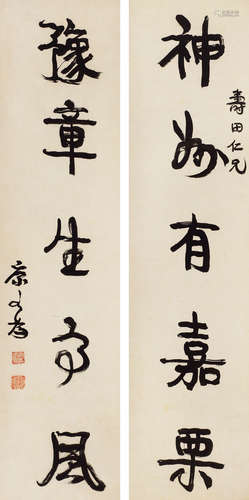 神州有嘉栗
壽田仁兄
豫章生名風
康有為